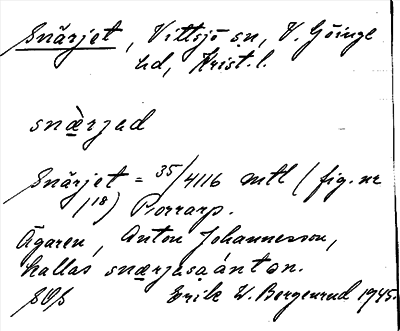 Snärjet, Vittsjö sn, V. Göinge
hd, Krist. l.
snæ̀rjad
Snärjet = 35/4116 mtl (fig. nr
118) Porrarp.
Ägaren, Anton Johannesson,
kallas snærjasaánton.
Erik W. Bergenrud 1945.